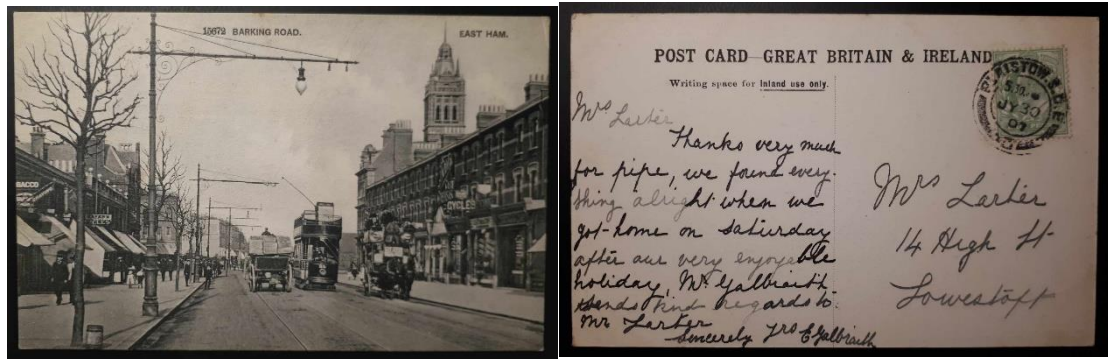 15672 BARKING ROAD.
EAST HAM.
BACCO
CYCLES
POST CARD—GREAT BRITAIN & IRELAND
Writing space for Inland use only.
PLAISTOW.S.O.E
JY 30
07
Mrs Larter
Thanks very much
for pipe, we found every-
thing alright when we
got home on Saturday
after our very enjoyable
holiday, Mr Galbraith
sends kind regards to
Mr Larter
Sincerely Yrs E Galbraith
Mrs Larter
14 High St
Lowestoft